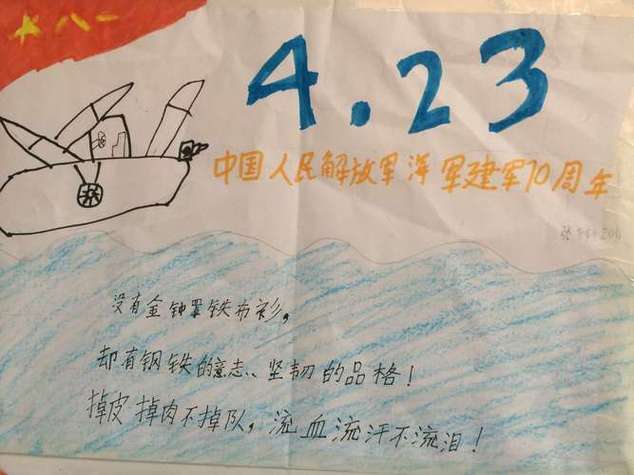 八一
4.23
中国人民解放军洋军建军70周年
没有金钟罩铁布衫,
却有钢铁的意志、坚韧的品格!
掉皮掉肉不掉队,流血流汗不流泪!